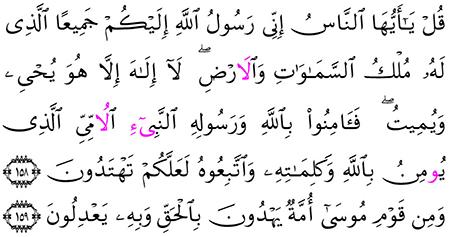 قُلْ يَـٰٓأَيُّهَا اَ۬لنَّاسُ إِنِّے رَسُولُ اُ۬للَّهِ إِلَيْكُمْ جَمِيعًا اَ۬لَّذِے
لَهُۥ مُلْكُ اُ۬لسَّمَـٰوَٰتِ وَالَارْضِۖ لَآ إِلَـٰهَ إِلَّا هُوَ يُحْيِۦ
وَيُمِيتُۖ فَـَٔامِنُوا۟ بِاللَّهِ وَرَسُولِهِ اِ۬لنَّبِےٓءِ اِ۬لُامِّيِّ اِ۬لَّذِے
يُومِنُ بِاللَّهِ وَكَلِمَـٰتِهِۦ وَاتَّبِعُوهُ لَعَلَّكُمْ تَهْتَدُونَ ١٥٨
وَمِن قَوْمِ مُوسَىٰٓ أُمَّةٌ يَهْدُونَ بِالْحَقِّ وَبِهِۦ يَعْدِلُونَ ١٥٩